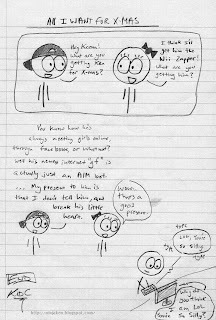 All I WANT FOR X-MAS
Hey Keena!
what are you
getting Ren
for X-mas?
I think I'll
get him the
Wii Zapper!
What are you
getting him?
You know how he's
always meeting girls online,
through facebook or whatnot?
Well his newest interweb "gf" is
actually just an AIM bot.
... My present to him is
that I don't tell him, and
break his little
heart.
Wow..
that's a
good
present.
lol, Susie
so silly
Why do
you think
I am lol,
Susie So Silly?
http://
.blogspot.com/